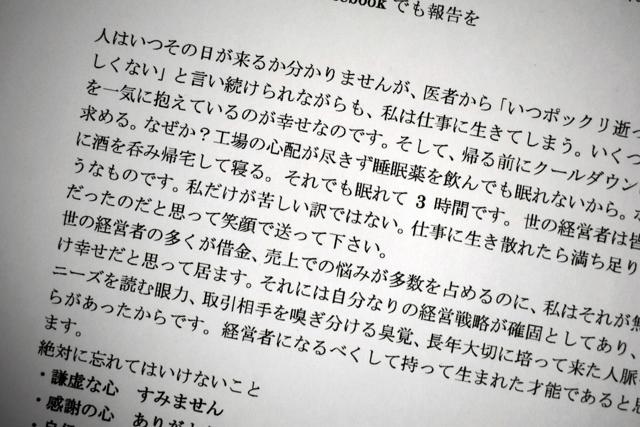 ebook でも報告を
人はいつその日が来るか分かりませんが、医者から「いつポックリ逝っ
しくない」と言い続けられながらも、私は仕事に生きてしまう。いくつ
を一気に抱えているのが幸せなのです。そして、帰る前にクールダウン
求める。なぜか？工場の心配が尽きず睡眠薬を飲んでも眠れないから。
に酒を呑み帰宅して寝る。それでも眠れて 3 時間です。世の経営者は皆
うなものです。私だけが苦しい訳ではない。仕事に生き散れたら満ち足り
だったのだと思って笑顔で送って下さい。
世の経営者の多くが借金、売上での悩みが多数を占めるのに、私はそれが無
け幸せだと思って居ます。それには自分なりの経営戦略が確固としてあり、
ニーズを読む眼力、取引相手を嗅ぎ分ける臭覚、長年大切に培って来た人脈
らがあったからです。経営者になるべくして持って生まれた才能であると思
ます。
絶対に忘れてはいけないこと
・謙虚な心　すみません
・感謝の心　ありがと